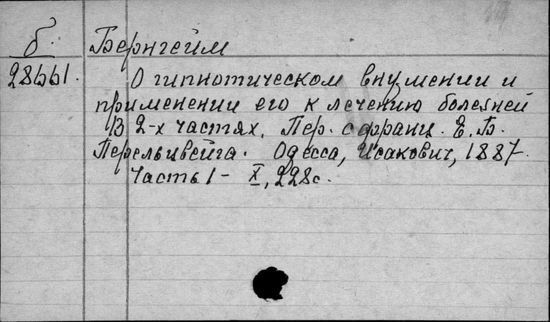 б. Бернгейм
28661. О гипнотическом внушении и
применении его к лечению болезней
В 2-х частях. Пер. с франц. Е. Б.
Перельцвейга. Одесса, Исакович, 1887.
Часть 1 - X, 228с.